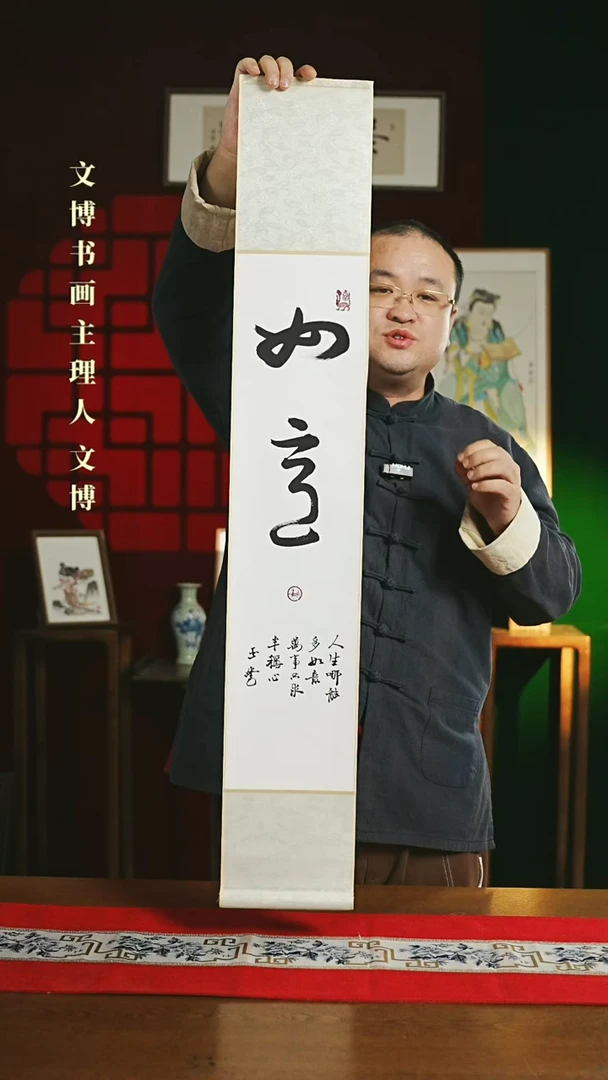 文博书画主理人 文博
如意
人生哪能
多如意
萬事只求
半稱心